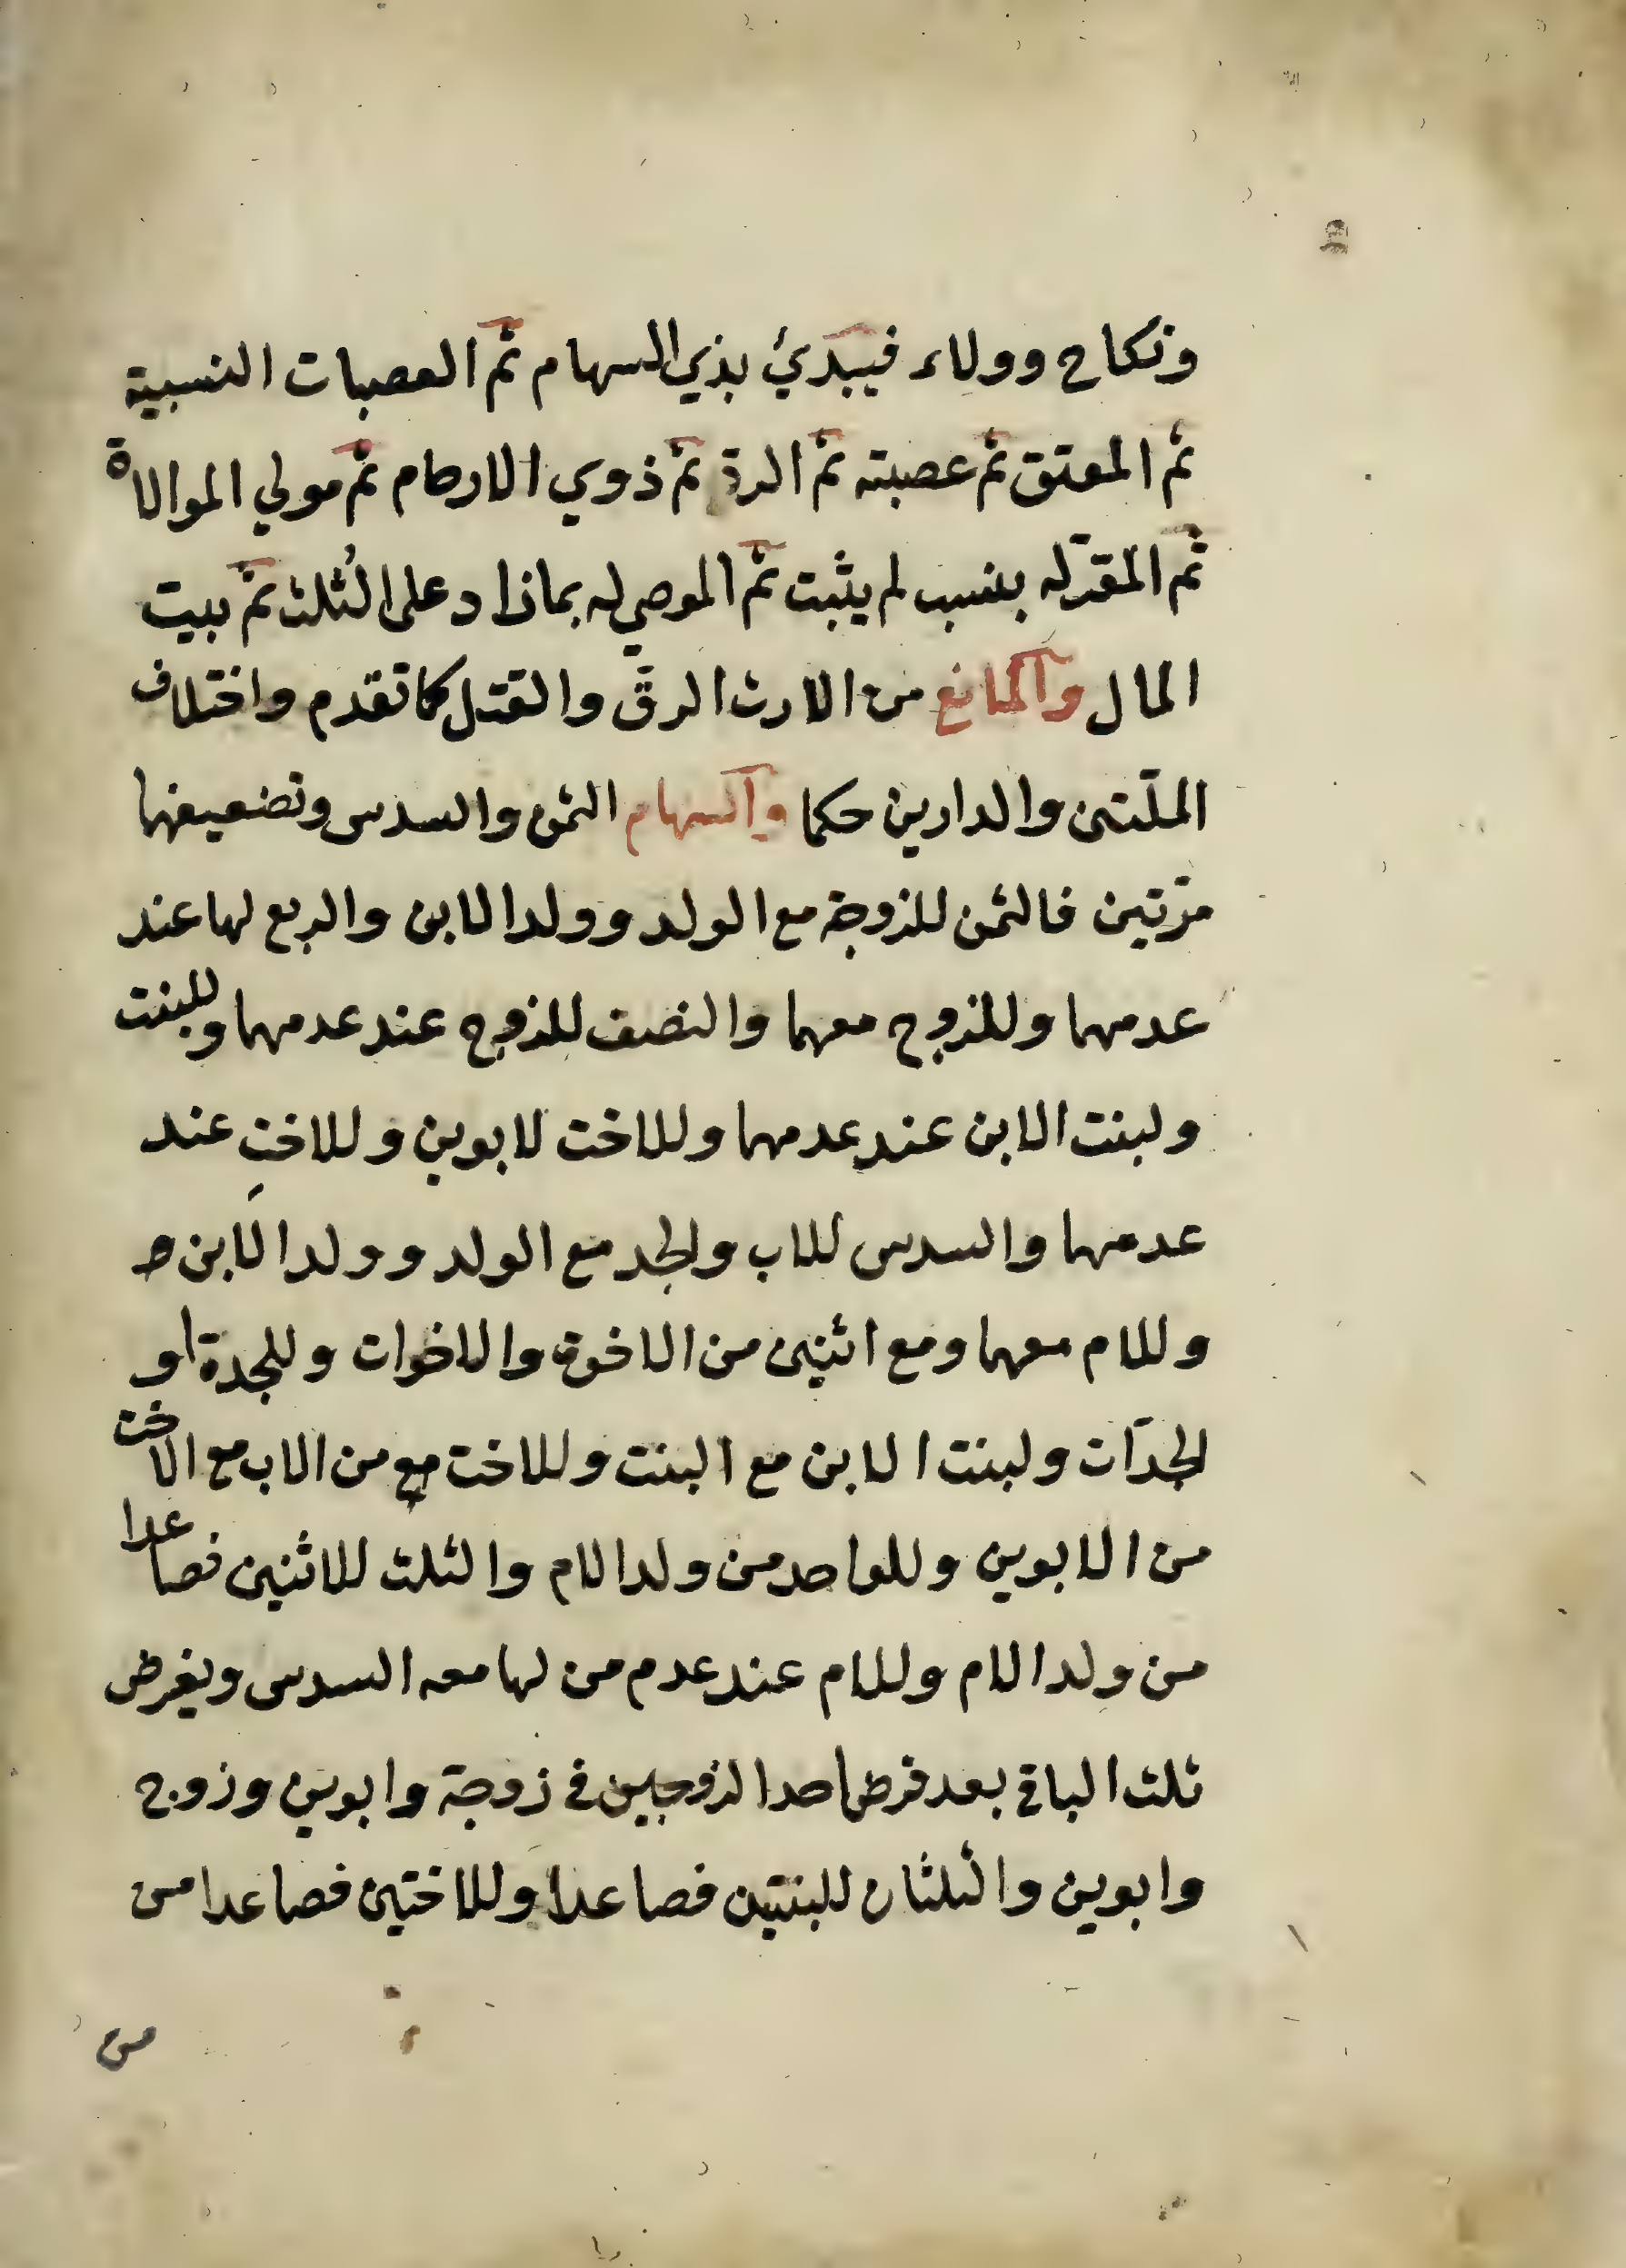 ونكاح وولاء فيبدئ بذي السهام ثم العصبات النسبية
ثم المعتق ثم عصبته ثم الردّ ثم ذوي الارحام ثم مولي الموالاة
ثم المقرّ له بنسب لم يثبت ثم الموصي له بما زاد على الثلث ثم بيت
المال والمانع من الارث الرقّ والقتل كما تقدم واختلاف
الملّتين والدارين حكما والسهام الثمن والسدس وتضعيفهما
مرّتين فالثمن للزوجة مع الولد وولد الابن والربع لها عند
عدمهما وللزوج معهما والنصف للزوج عند عدمهما وللبنت
ولبنت الابن عند عدمهما وللاخت لابوين وللاخت عند
عدمهما والسدس للاب والجد مع الولد وولد الابن
وللام معهما ومع اثنين من الاخوة والاخوات وللجدة او
الجدّات ولبنت الابن مع البنت وللاخت مع من الاب مع الاخت
من الابوين وللواحد من ولد الام والثلث للاثنين فصاعدا
من ولد الام وللام عند عدم من لها معه السدس ويفرض
ثلث الباقي بعد فرض احد الزوجين في زوجة وابوين وزوج
وابوين والثلثان للبنتين فصاعدا وللاختين فصاعدا من
من